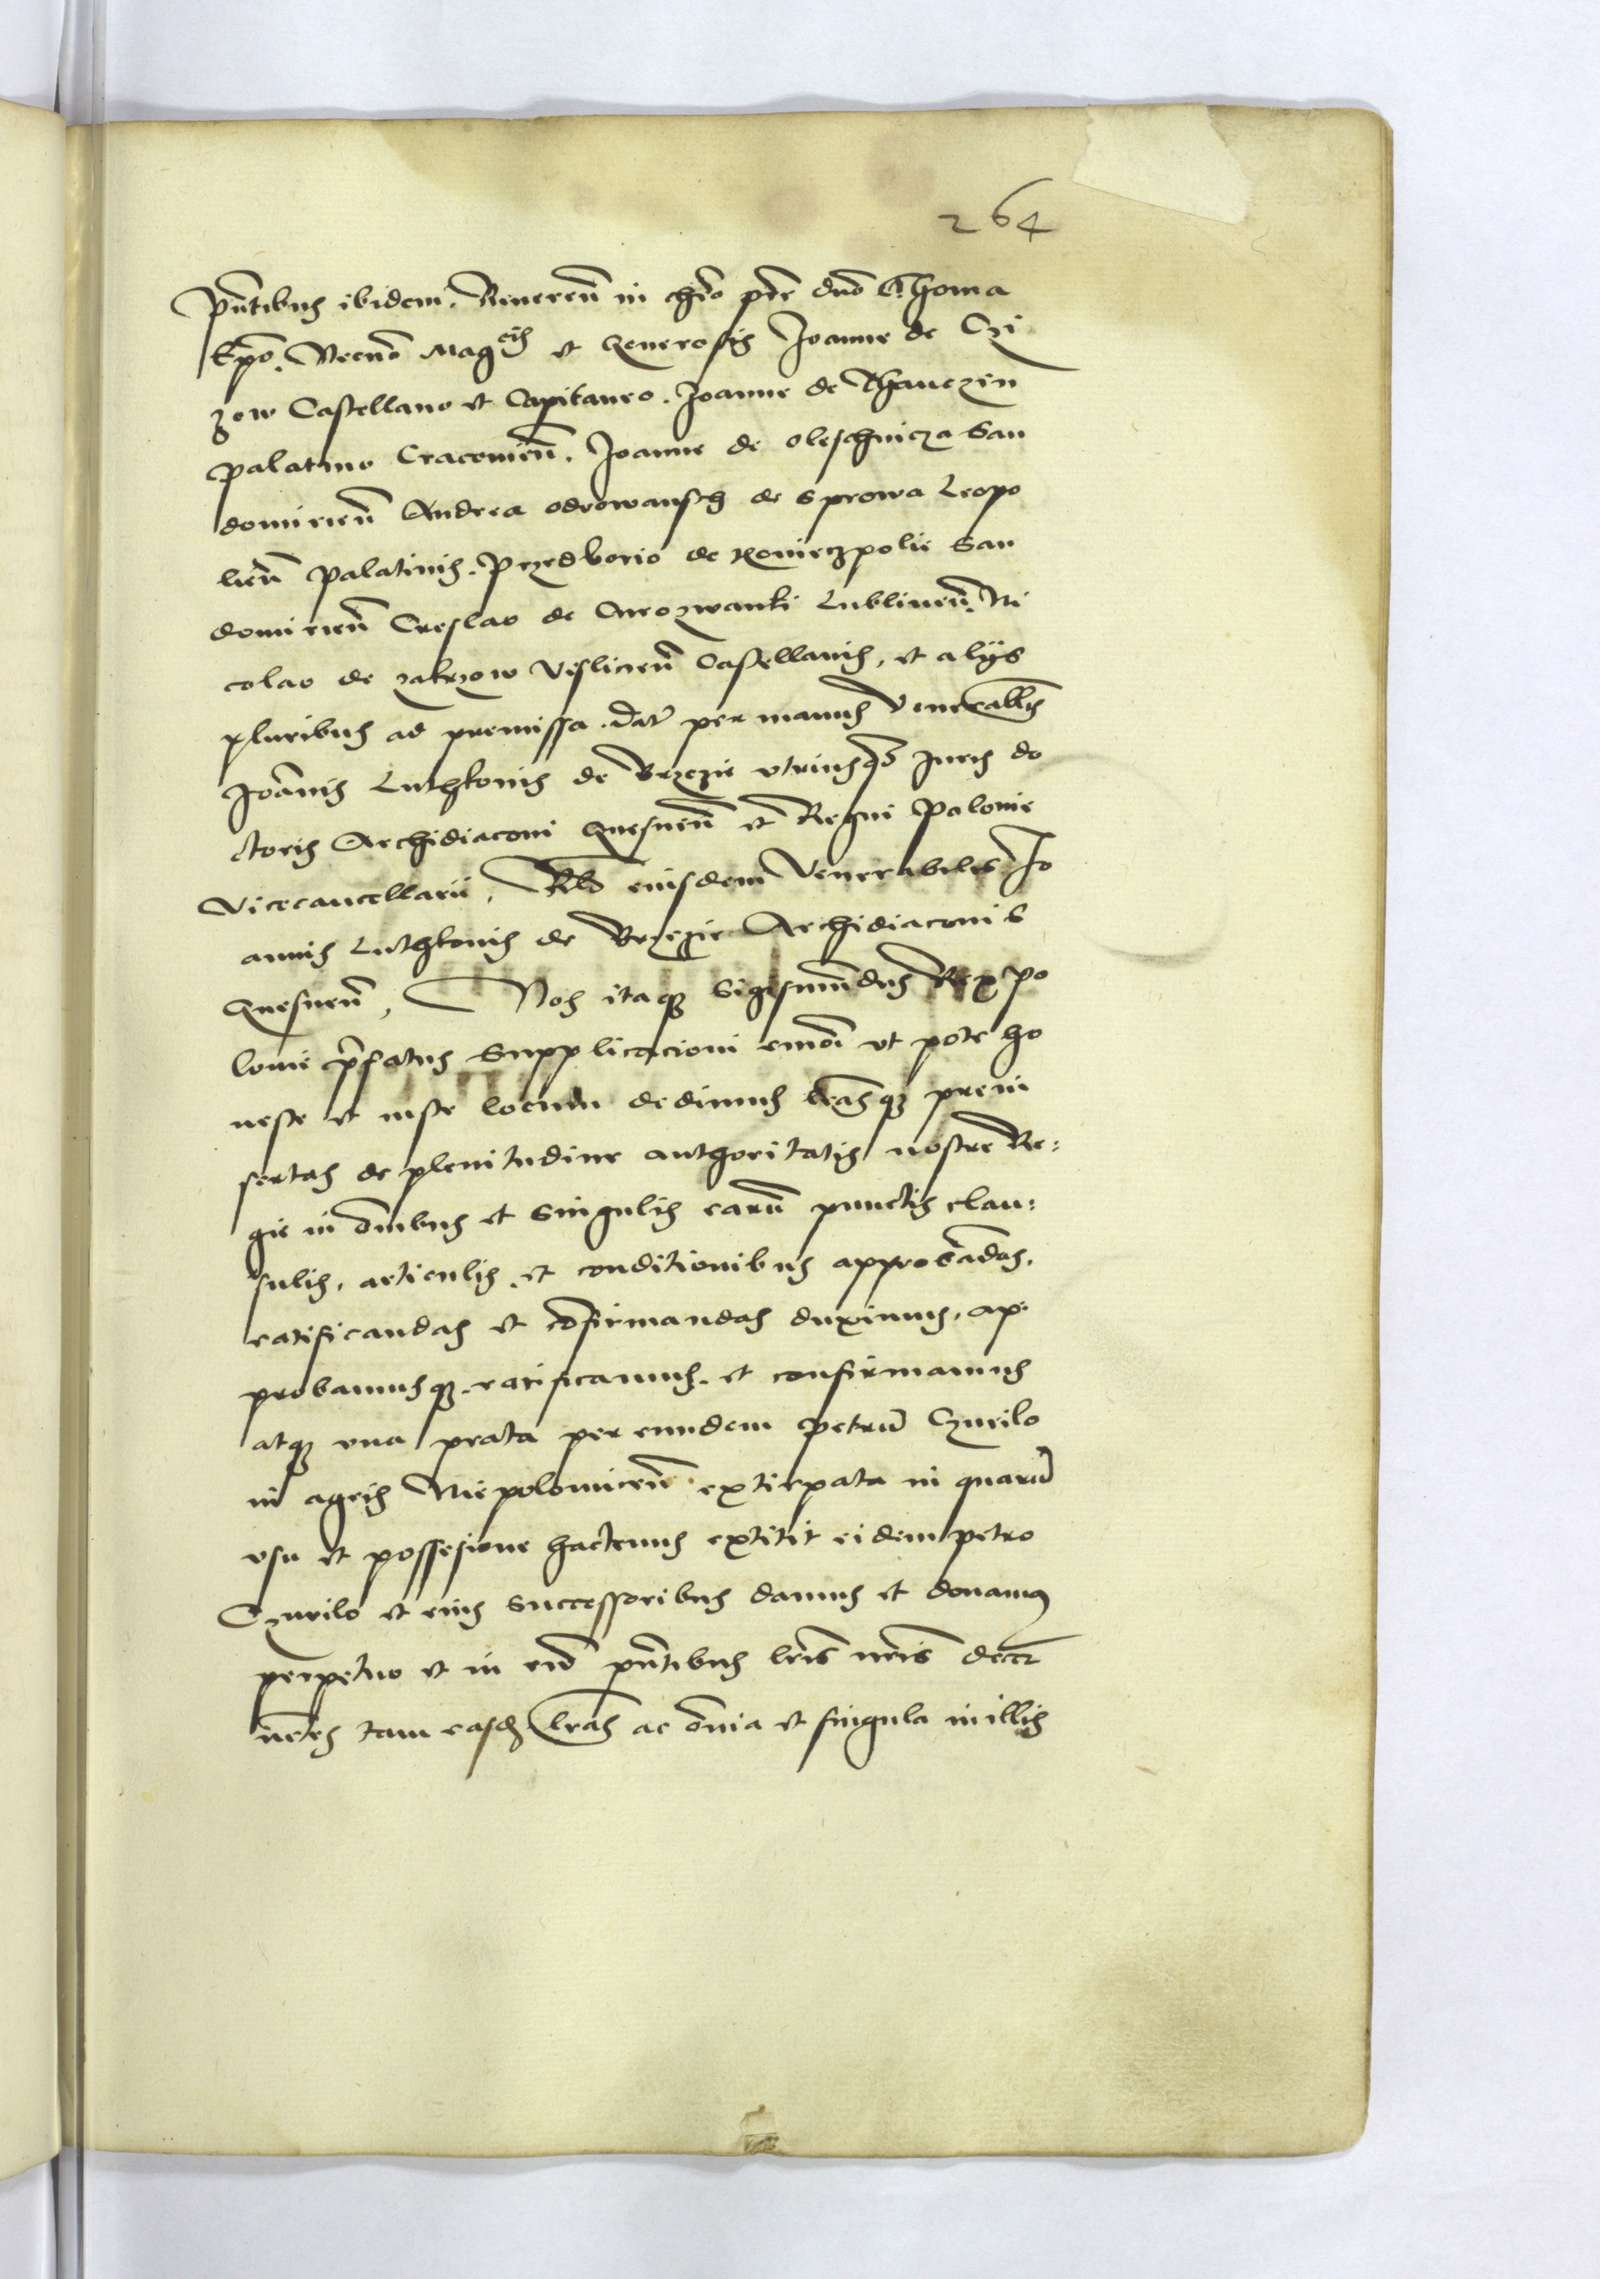 264
Pntibus ibidem. Reveren in chro pre dno Thoma
Epo. Necno Magcis et Generosis Joanne de Czi
zow Castellano et Capitaneo. Joanne de Thanczin
palatino Cracovien. Joanne de Oleschnicza San
domirien Andrea odrowansch de Sprowa Leopo
lien palatinis. Przedborio de Konieczpolie San
domirien Creslao de Curozwanki Lublinen. Ni
colao de zakrzow Vislicien Castellanis, et alys
pluribus ad premissa. dat per manus Venerablis
Joannis Luthkonis de Brzezie utriusque Juris do
ctoris Archidiaconi Gnesnen et Regni Polonie
Vicecancellarii, Rlo eiusdem Venerabilis Jo
annis Luthkonis de Brzezie Archidiaconi S
Gnesnen, Nos itaque Sigismundus Rex po
lonie prefatus Supplicacioni emoi ut pote ho
neste et iuste locum dedimus lrasque prein
sertas de plenitudine authoritatis nostre Re:
gie in omibus et Singulis earum punctis clau:
sulis, articulis, et conditionibus approbadas,
ratificandas et cofirmandas duximus, ap:
probamusque ratificamus, et confirmamus
atque una prata per eundem Petrum Czurilo
in agris Niepolomicen extirpata in quarum
usu et possesione hactenus extitit eidem petro
Czurilo et eius Successoribus damus et donamus
perpetuo et in eum pntibus lris nris decer
netes tam easdem lras ac omnia et singula in illis